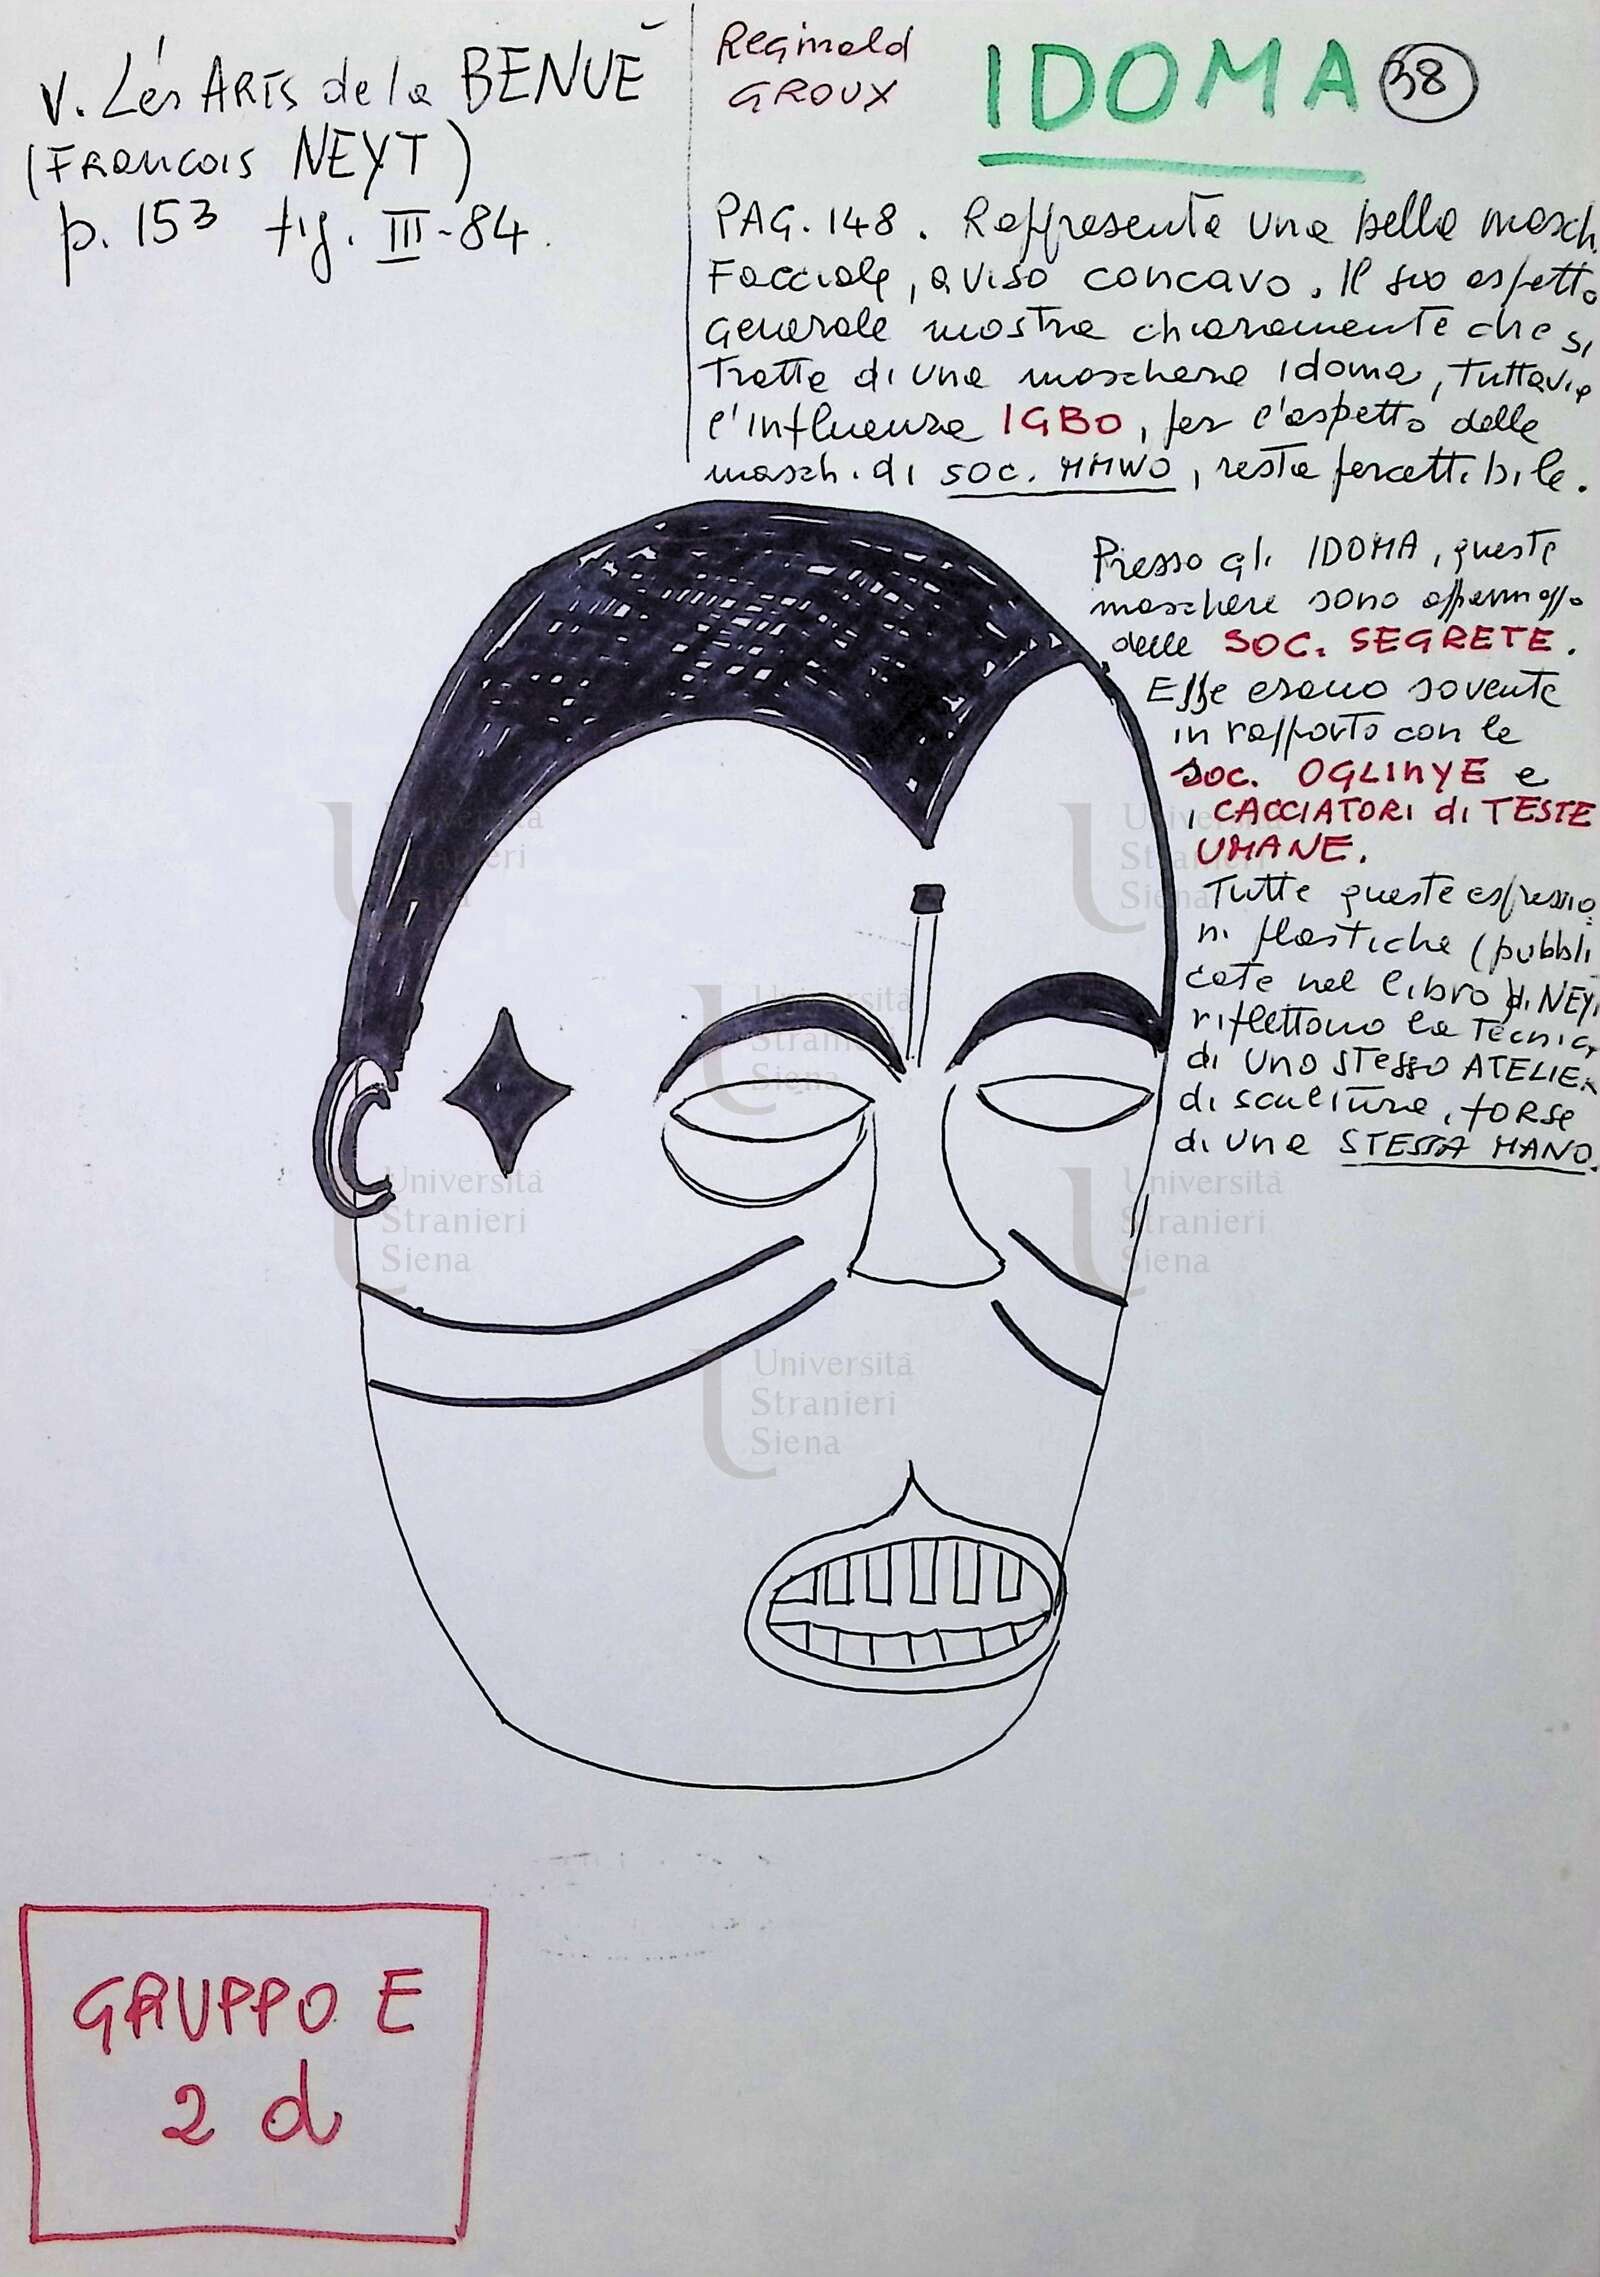 V. Lés ARTS de la BENUÉ
(FRANCOIS NEYT)
p. 153 fig. III-84.
Reginald
GROUX
IDOMA 38
PAG. 148. Rappresenta una bella masch.
Facciale, a viso concavo. Il suo aspetto
generale mostra chiaramente che si
tratta di una maschera idoma, tuttavia
l'influenza IGBO, per l'aspetto delle
masch. di SOC. MMWO, resta percettibile.
Presso gli IDOMA, queste
maschere sono appannagg.
delle SOC. SEGRETE.
Esse erano sovente
in rapporto con le
soc. OGLINYE e
i CACCIATORI di TESTE
UMANE.
Tutte queste espressio=
ni plastiche (pubbli
cate nel libro di NEYT
riflettono la tecnica
di uno stesso ATELIER
di scultura, forse
di una STESSA MANO.
Università
Stranieri
Siena
Università
Stranieri
Siena
Università
Stranieri
Siena
Università
Stranieri
Siena
Università
Stranieri
Siena
Università
Stranieri
Siena
GRUPPO E
2 d